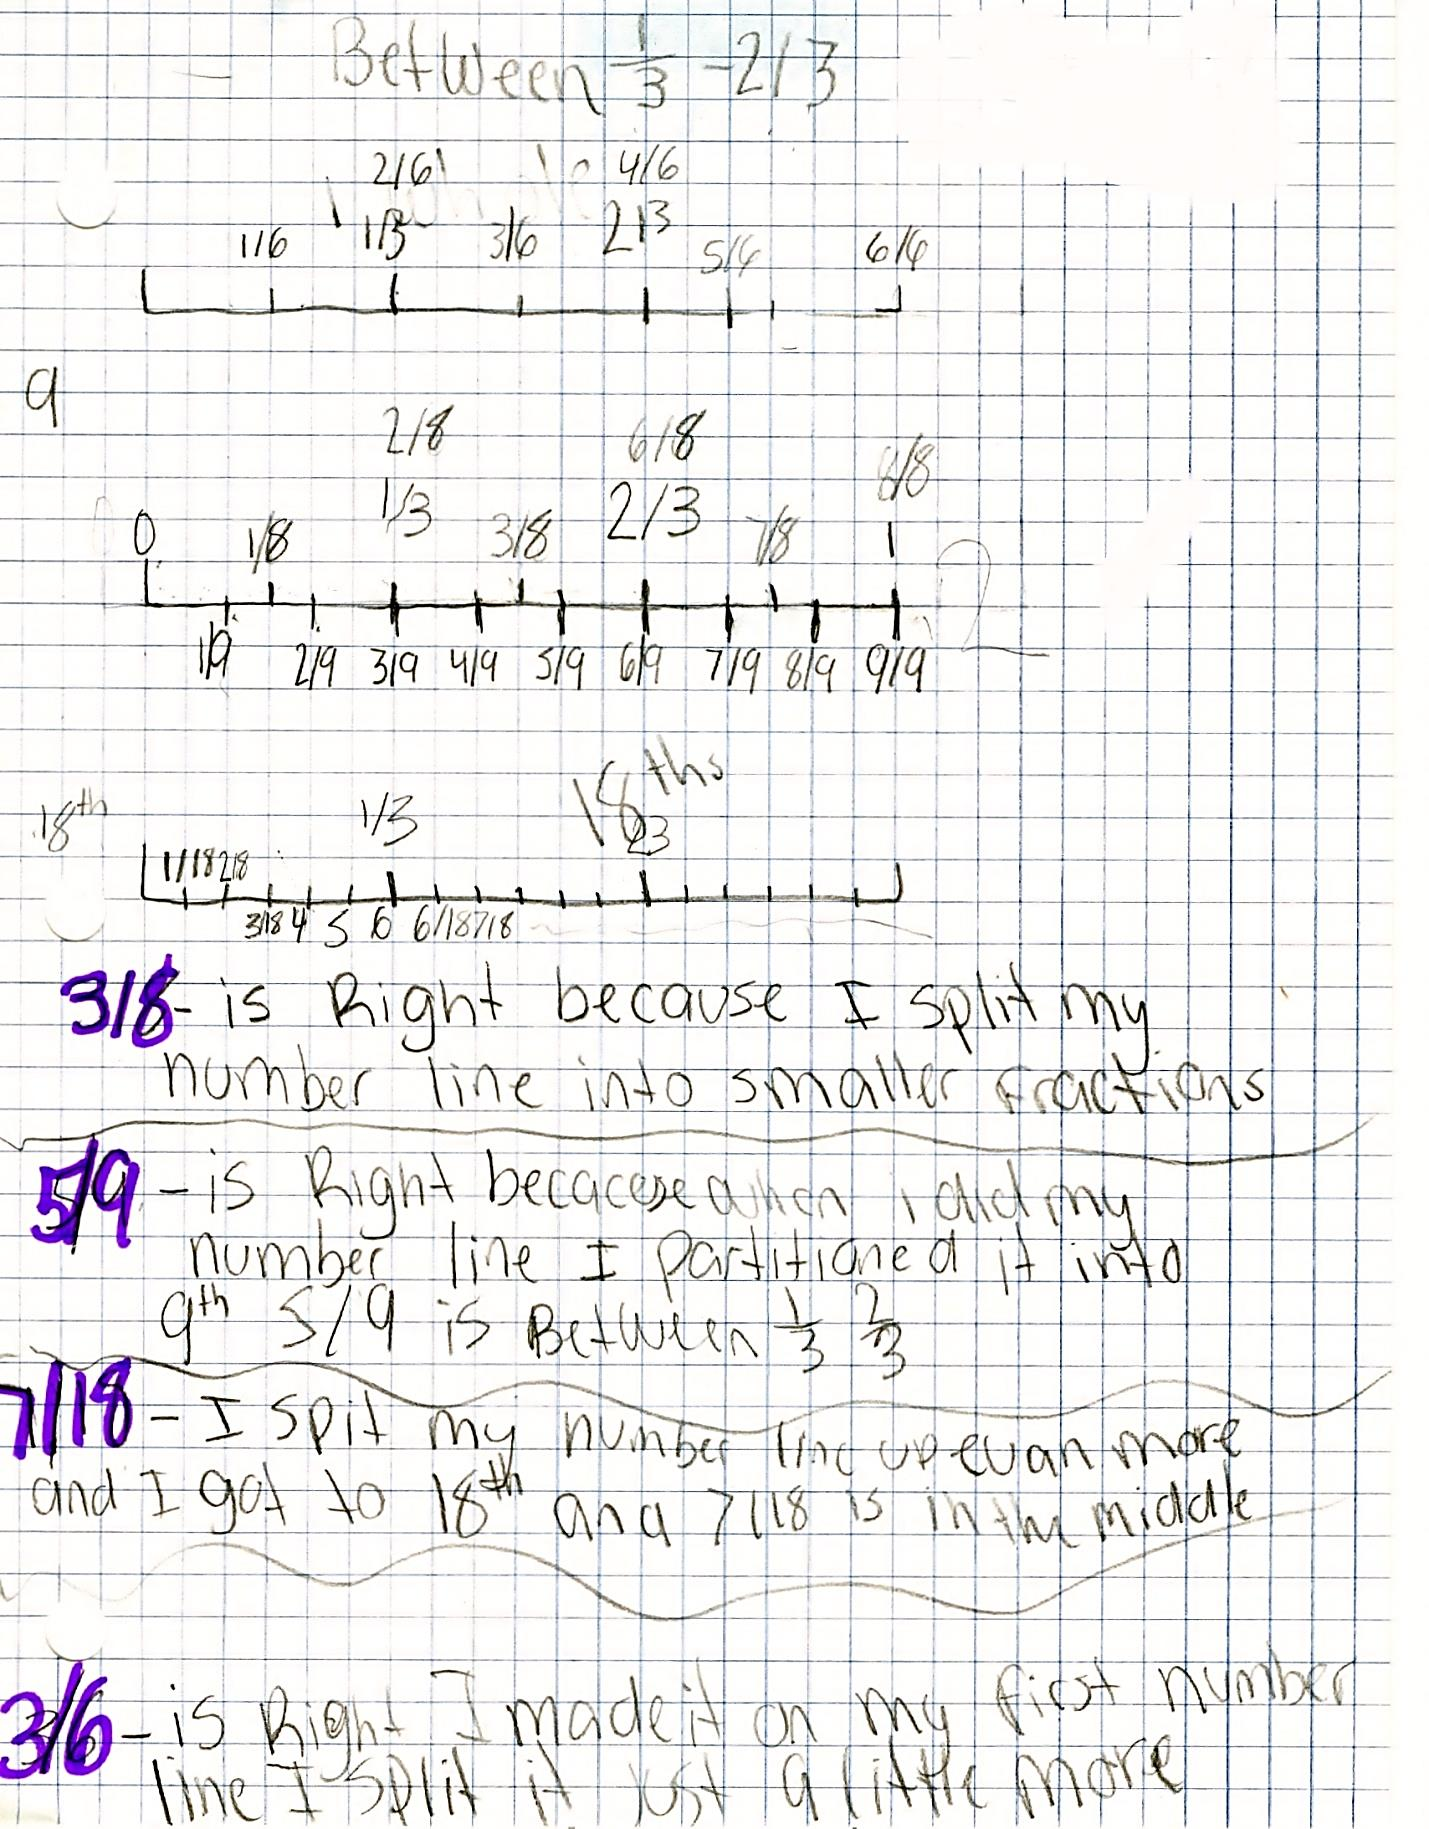 Between 1/3 - 2/3
2/6 4/6
1/6 1/3 3/6 2/3 5/6 6/6
9
2/8 6/8 8/8
0 1/8 1/3 3/8 2/3 7/8 1
2
1/9 2/9 3/9 4/9 5/9 6/9 7/9 8/9 9/9
18th 1/3 18ths
23
1/18 2/8
3/18 4 5 6 6/18 7/8
3/8 - is Right because I split my
number line into smaller fractions
5/9 - is Right becacese when i did my
number line I partitioned it into
9th 5/9 is Between 1/3 2/3
7/18 - I spit my number line up evan more
and I got to 18th and 7/18 is in the middle
3/6 - is Right I made it on my first number
line I split it just a little more